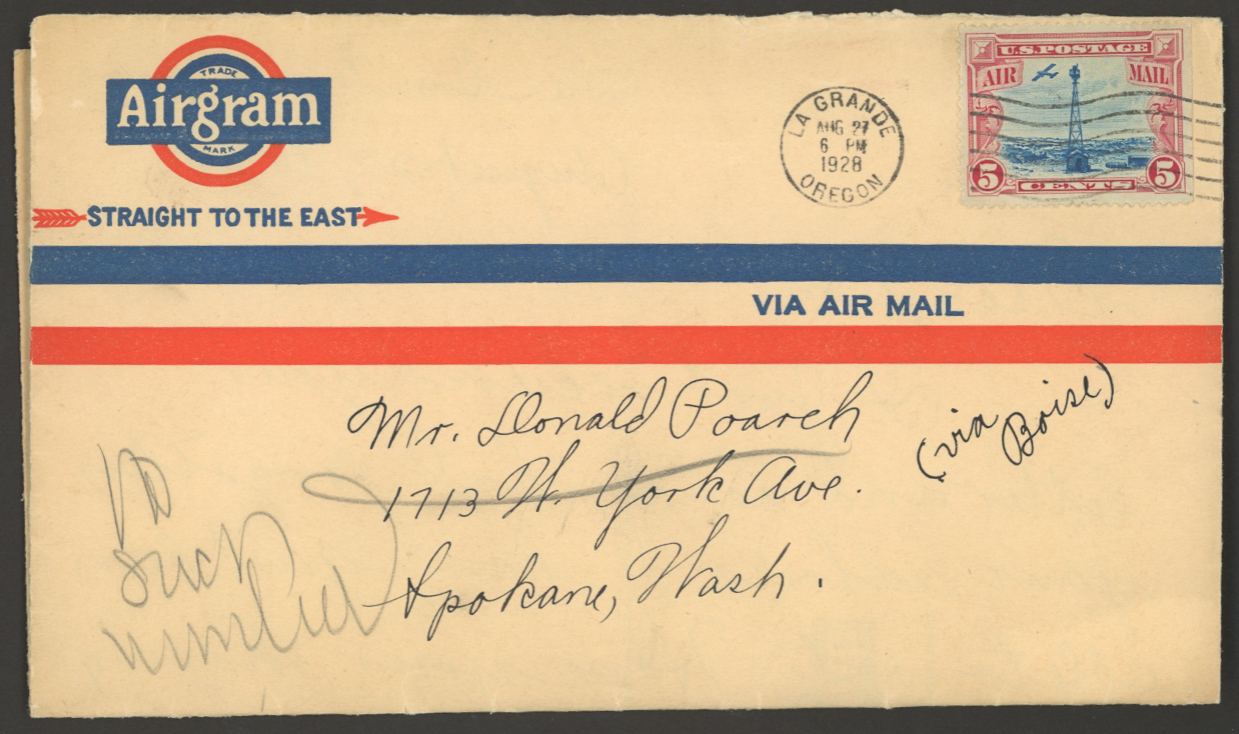 TRADE
Airgram
MARK
STRAIGHT TO THE EAST
LA GRANDE
AUG 27
6 PM
1928
OREGON
U.S. POSTAGE
AIR MAIL
5 CENTS 5
VIA AIR MAIL
Mr. Donald Poarch
1713 W. York Ave.
Spokane, Wash.
(via
Boise)
No
such
number